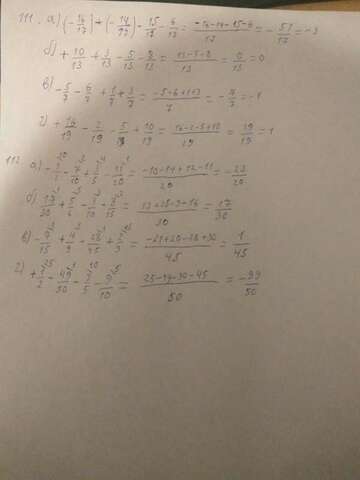 111. а) (-14/17) + (-14/17) - 15/17 - 6/17 = (-14-14-15-6)/17 = -51/17 = -3
б) + 10/13 + 3/13 - 5/13 - 8/13 = (13-5-8)/13 = 0/13 = 0
в) -5/7 - 6/7 + 1/7 + 3/7 = (-5-6+1+3)/7 = -7/7 = -1
г) + 16/19 - 2/19 - 5/19 + 10/19 = (16-2-5+10)/19 = 19/19 = 1
112. а) - 1/2 - 7/10 + 3/5 - 11/20 = (-10-14+12-11)/20 = -23/20
б) 13/30 + 5/6 - 3/10 - 8/15 = /30 = 17/30
в) - 7/15 + 4/9 - 28/45 + 2/3 = (-21+20-28+30)/45 = 1/45
г) + 1/2 - 49/50 - 3/5 - 9/10 = /50 = -99/50